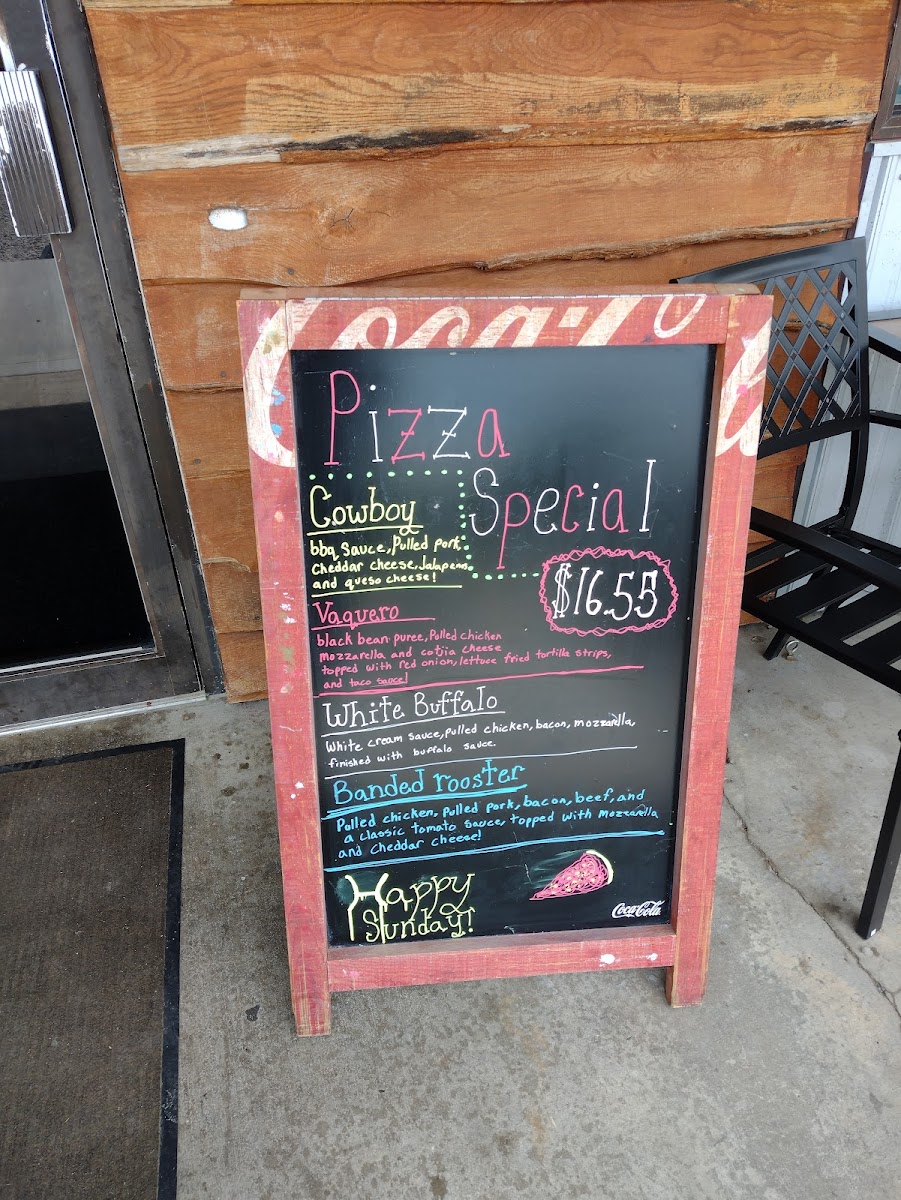 Coca-Co
Pizza
Special
$16.55
Cowboy
bbq sauce, Pulled pork,
cheddar cheese, Jalapenos
and queso cheese!
Vaquero
black bean puree, Pulled chicken
mozzarella and cotjia cheese
topped with red onion, lettuce fried tortilla strips,
and taco sauce!
White Buffalo
White cream sauce, pulled chicken, bacon, mozzarella,
finished with buffalo sauce.
Banded rooster
Pulled chicken, Pulled pork, bacon, beef, and
a classic tomato sauce, topped with mozzarella
and cheddar cheese!
Happy
Sunday!
Coca-Cola